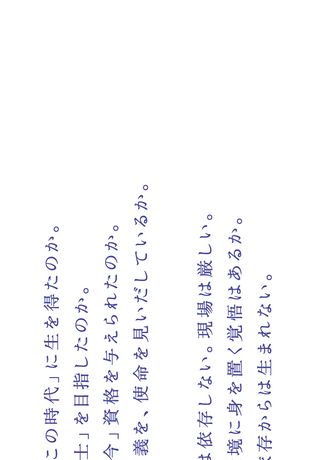 この時代」に生を得たのか。
士」を目指したのか。
今」資格を与えられたのか。
義を、使命を見いだしているか。
は依存しない。現場は厳しい。
境に身を置く覚悟はあるか。
存からは生まれない。